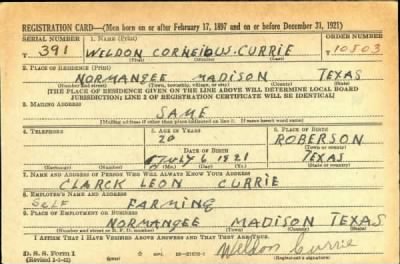 REGISTRATION CARD—(Men born on or after February 17, 1897 and on or before December 31, 1921)
SERIAL NUMBER 1. NAME (Print) ORDER NUMBER
T 391 WELDON CORNEIOUS CURRIE 10503
2. PLACE OF RESIDENCE (Print)
NORMANGEE MADISON TEXAS
(Number and street) (Town, township, village, or city) (County) (State)
[THE PLACE OF RESIDENCE GIVEN ON THE LINE ABOVE WILL DETERMINE LOCAL BOARD
JURISDICTION; LINE 2 OF REGISTRATION CERTIFICATE WILL BE IDENTICAL]
3. MAILING ADDRESS
SAME
[Mailing address if other than place indicated on line 2. If same insert word same]
4. TELEPHONE 5. AGE IN YEARS 6. PLACE OF BIRTH
20 ROBERSON
DATE OF BIRTH (Town or county)
JULY 6 1921 TEXAS
(Exchange) (Number) (Mo.) (Day) (Yr.) (State or country)
7. NAME AND ADDRESS OF PERSON WHO WILL ALWAYS KNOW YOUR ADDRESS
CLARCK LEON CURRIE
8. EMPLOYER'S NAME AND ADDRESS
SELF FARMING
9. PLACE OF EMPLOYMENT OR BUSINESS
NORMANGEE MADISON TEXAS
(Number and street or R. F. D. number) (Town) (County) (State)
I AFFIRM THAT I HAVE VERIFIED ABOVE ANSWERS AND THAT THEY ARE TRUE.
D. S. S. Form 1 Weldon Currie
(Registrant's signature)